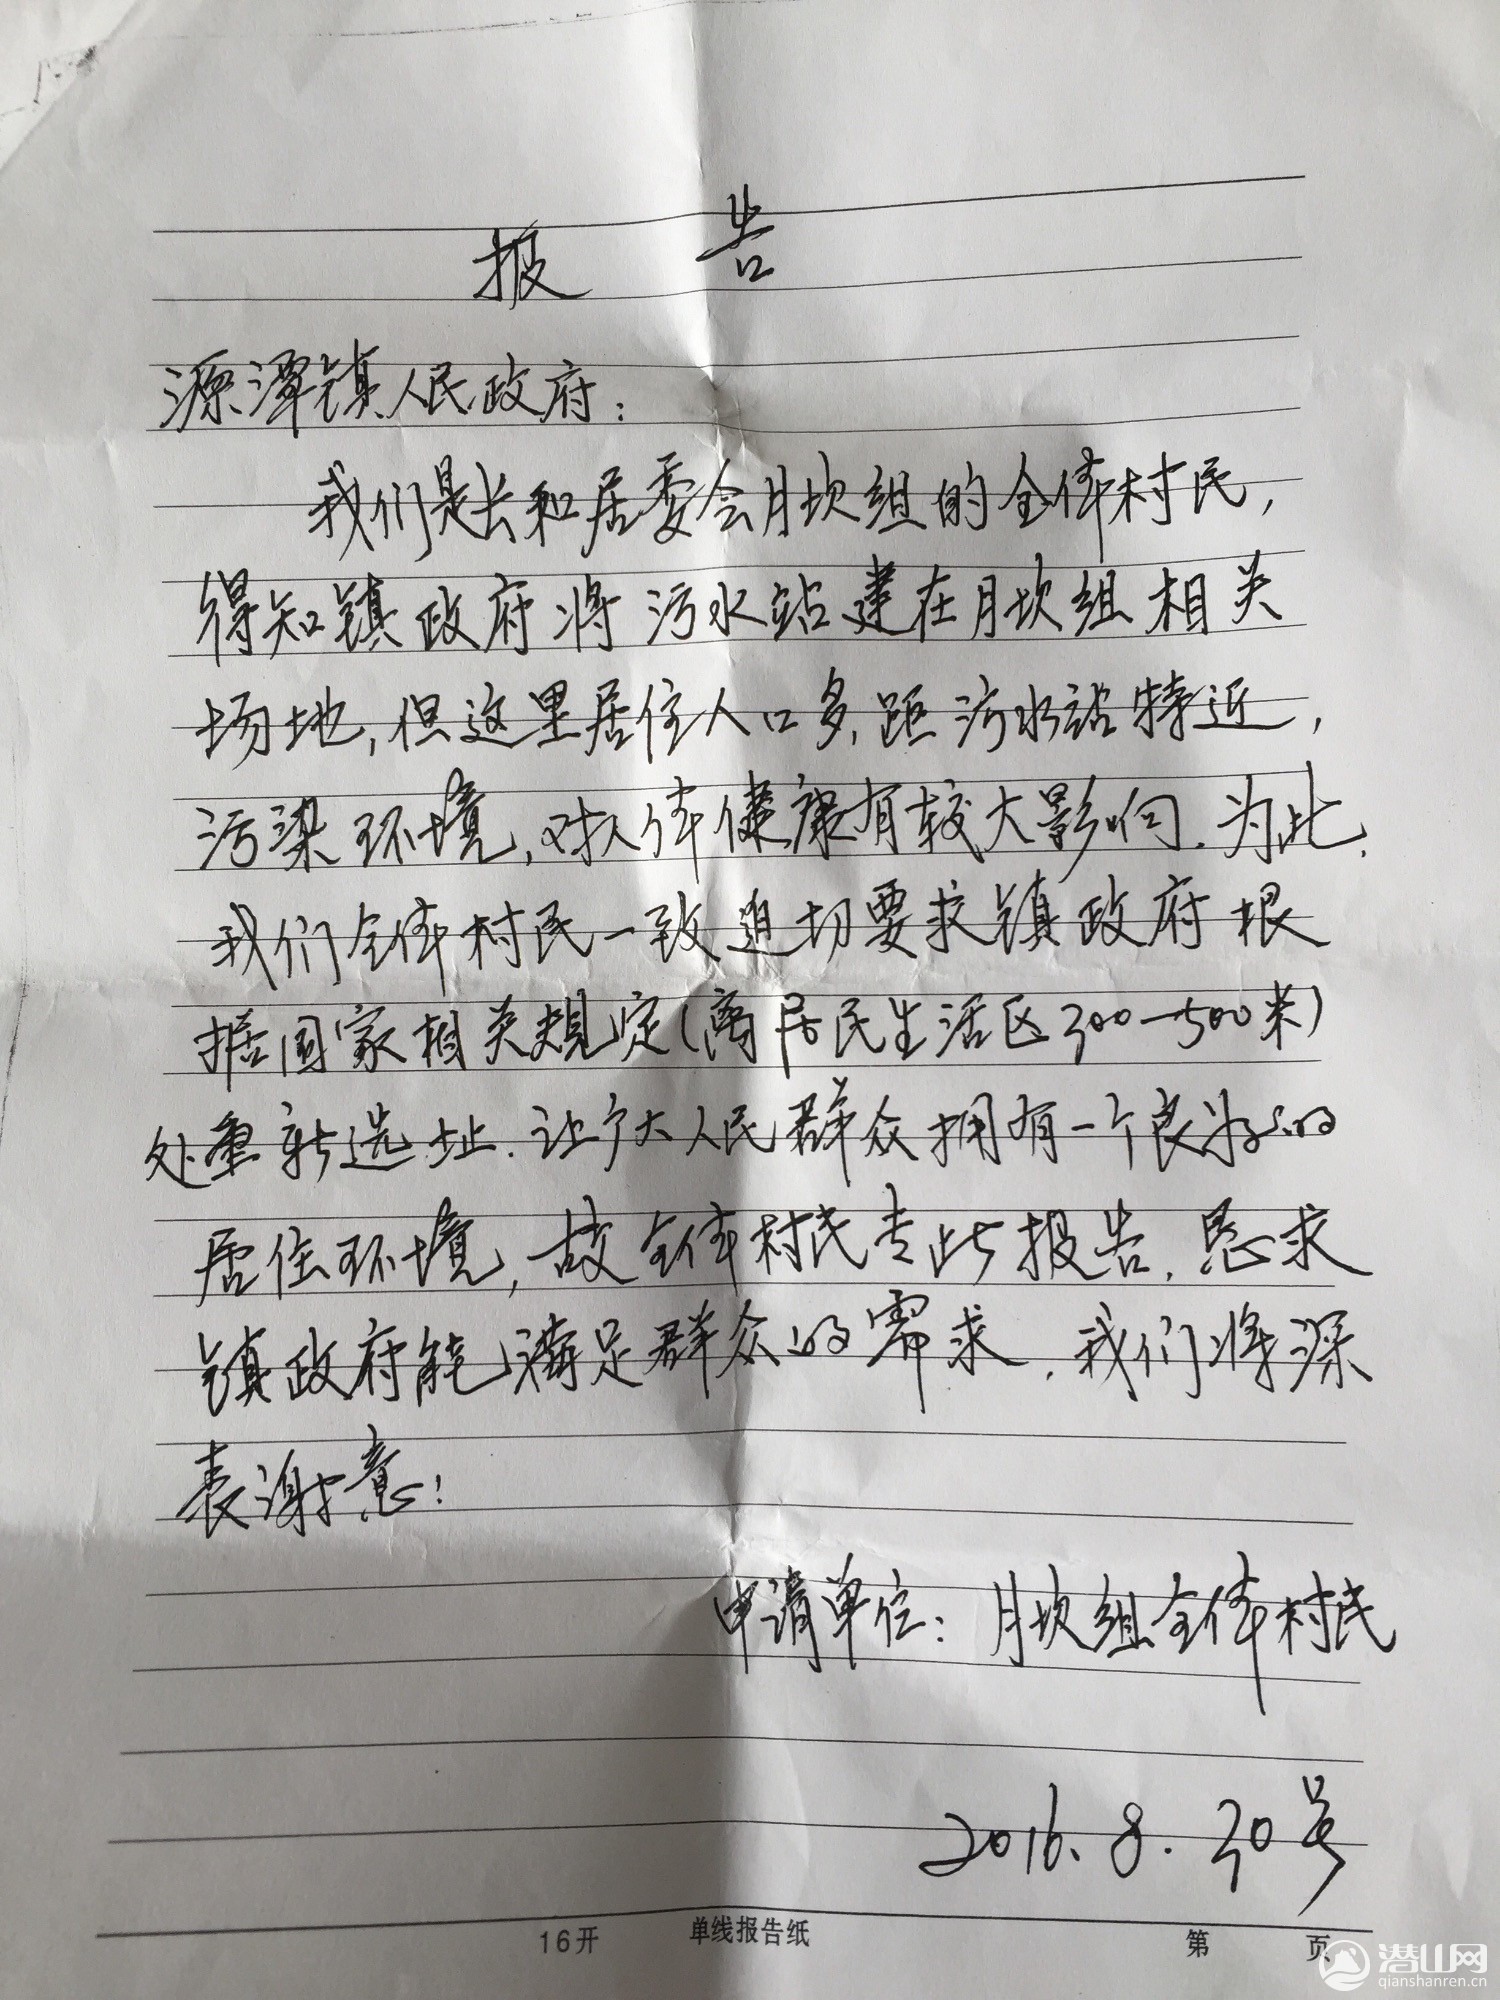 报 告
源潭镇人民政府：
我们是长和居委会月坎组的全体村民，
得知镇政府将污水站建在月坎组相关
场地，但这里居住人口多，距污水站特近，
污染环境，对人体健康有较大影响．为此，
我们全体村民一致迫切要求镇政府根
据国家相关规定(离居民生活区300—500米)
处重新选址．让广大人民群众拥有一个良好的
居住环境，故全体村民专此报告．恳求
镇政府能满足群众的需求．我们将深
表谢意！
申请单位：月坎组全体村民
2016.8.30号
16开 单线报告纸 第 页
潜山网
qianshanren.cn